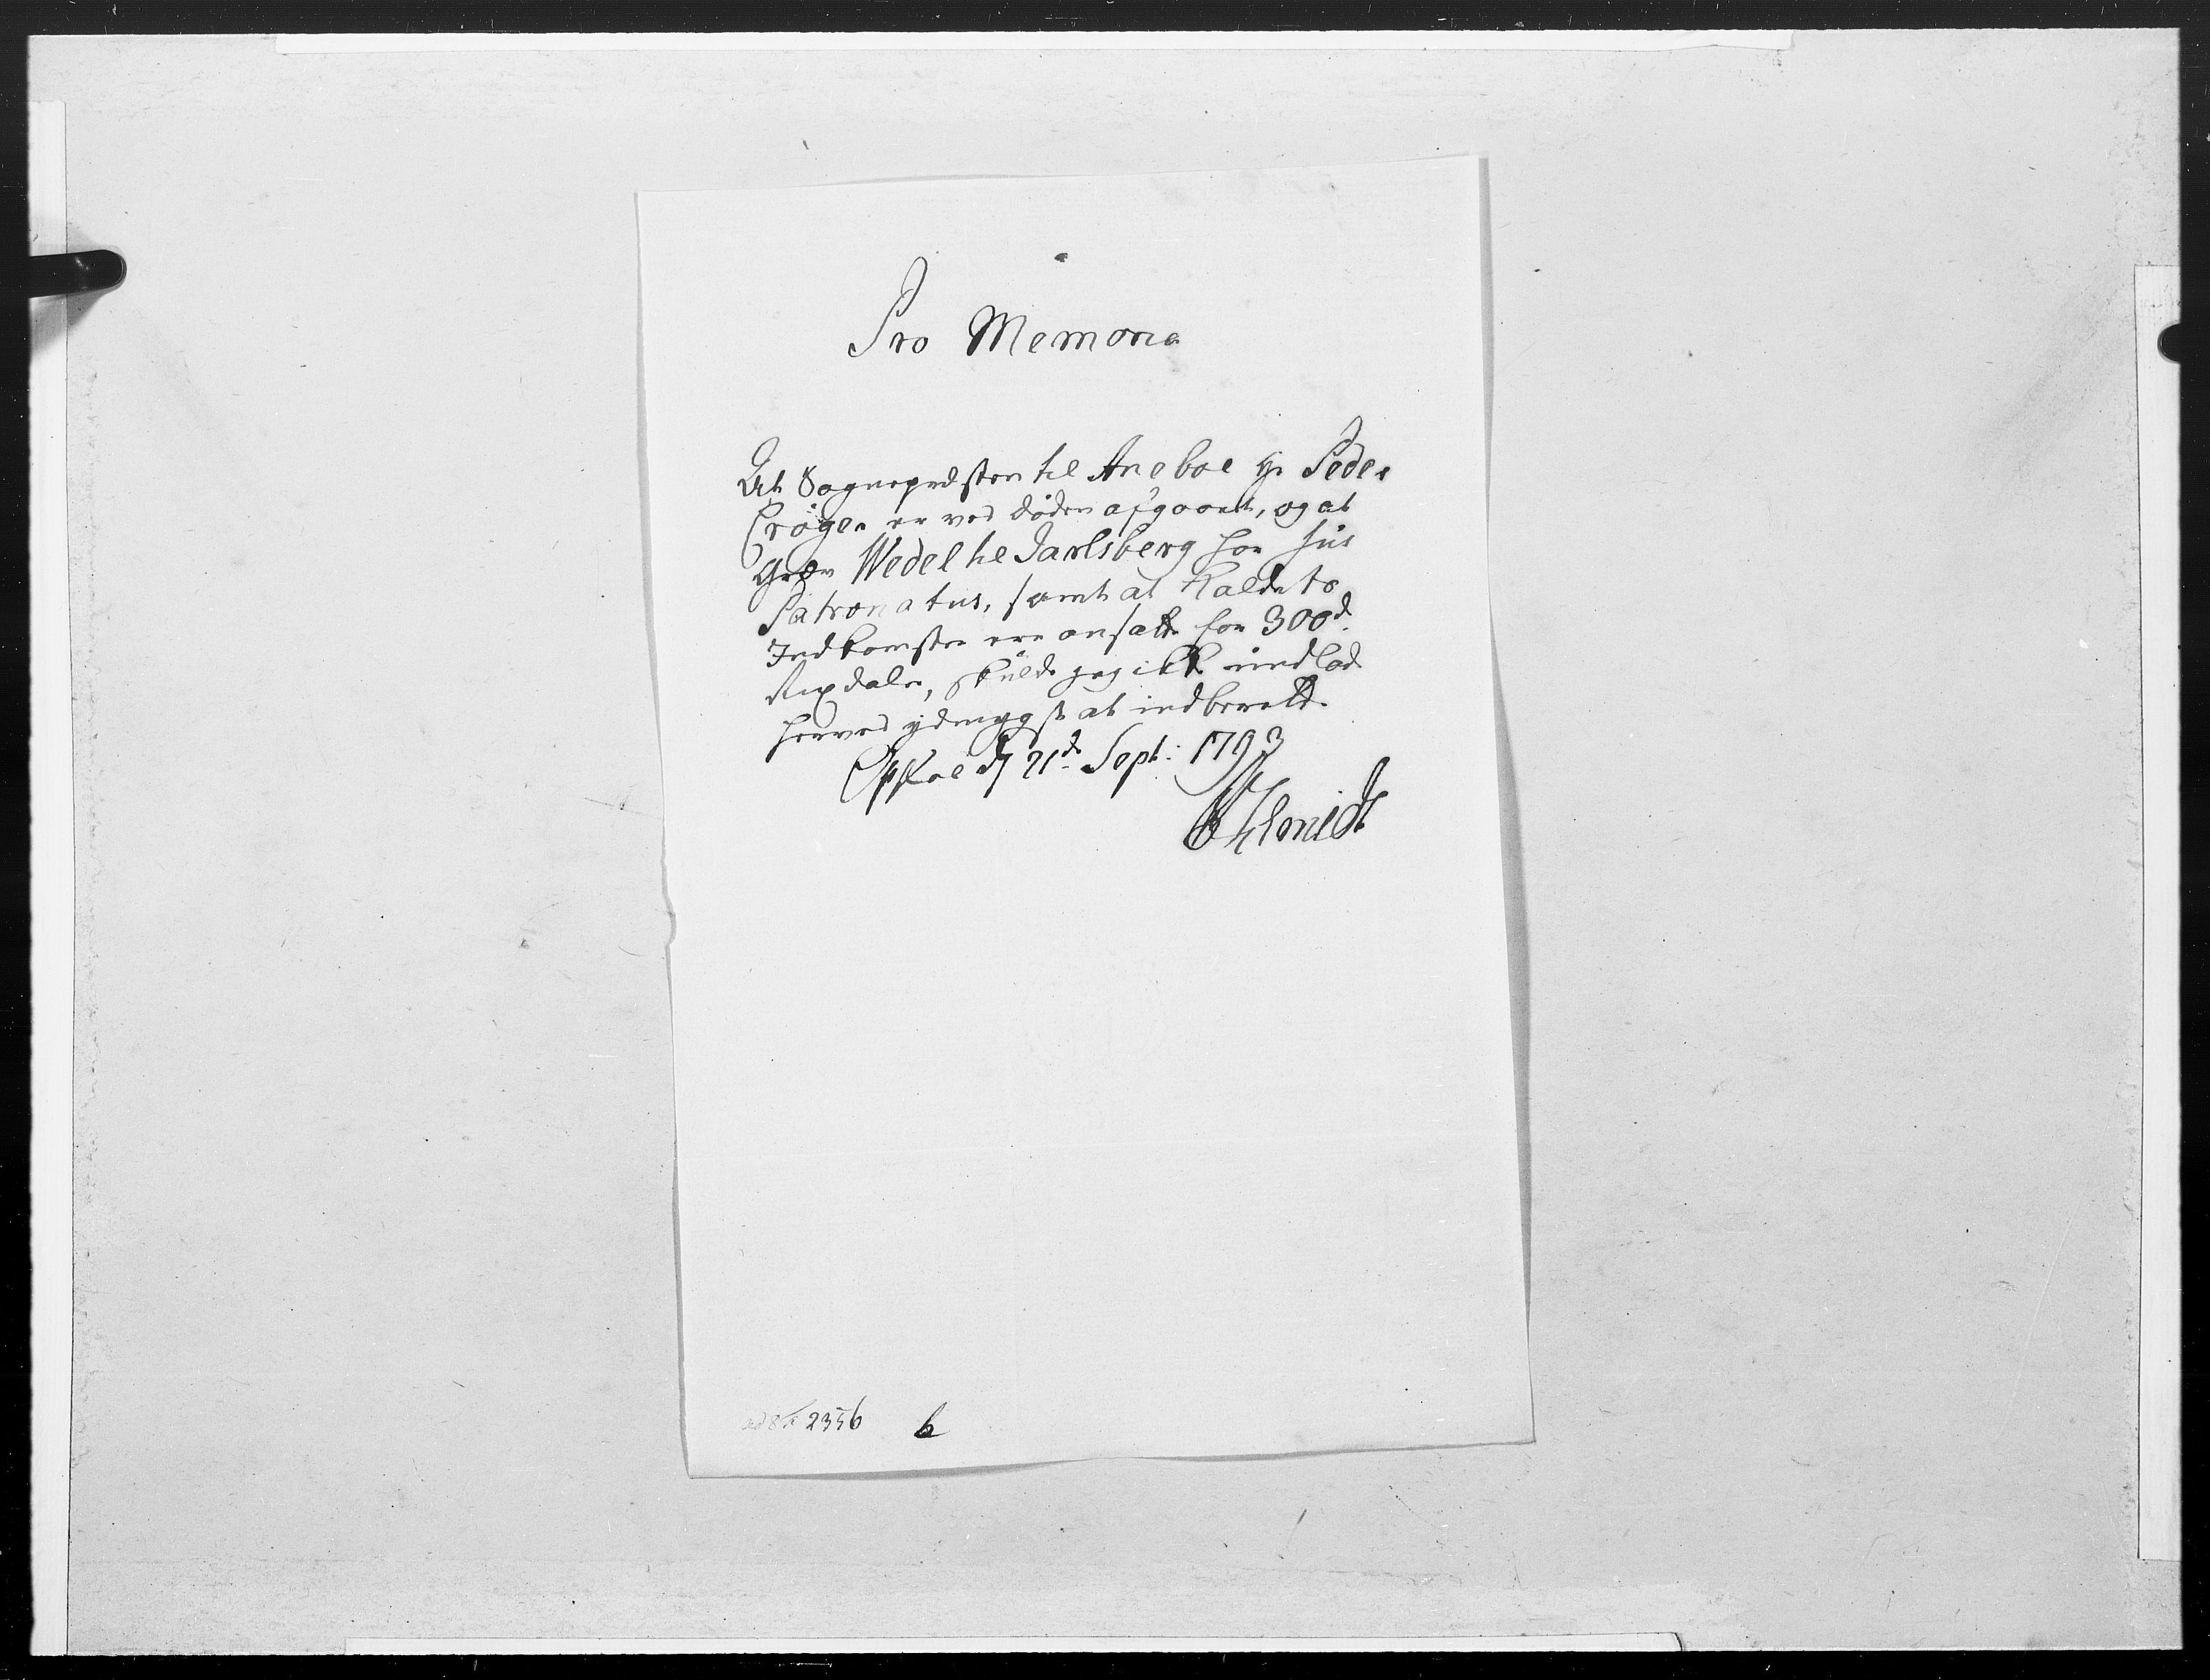 Pro Memoria
At Sognepræsten til Aneboe Hr Peder
Crøger er ved døden afgaaet, og at
Grev Wedel til Jarlsberg har Jus
Patronatus, samt at Kaldets
Indkomster ere ansatte for 300d
Rixdaler, skulde jeg ikke undlade
herved ydmygst at indberette.
Opsloe d 21de Sept: 1793
Schmidt
2356 b